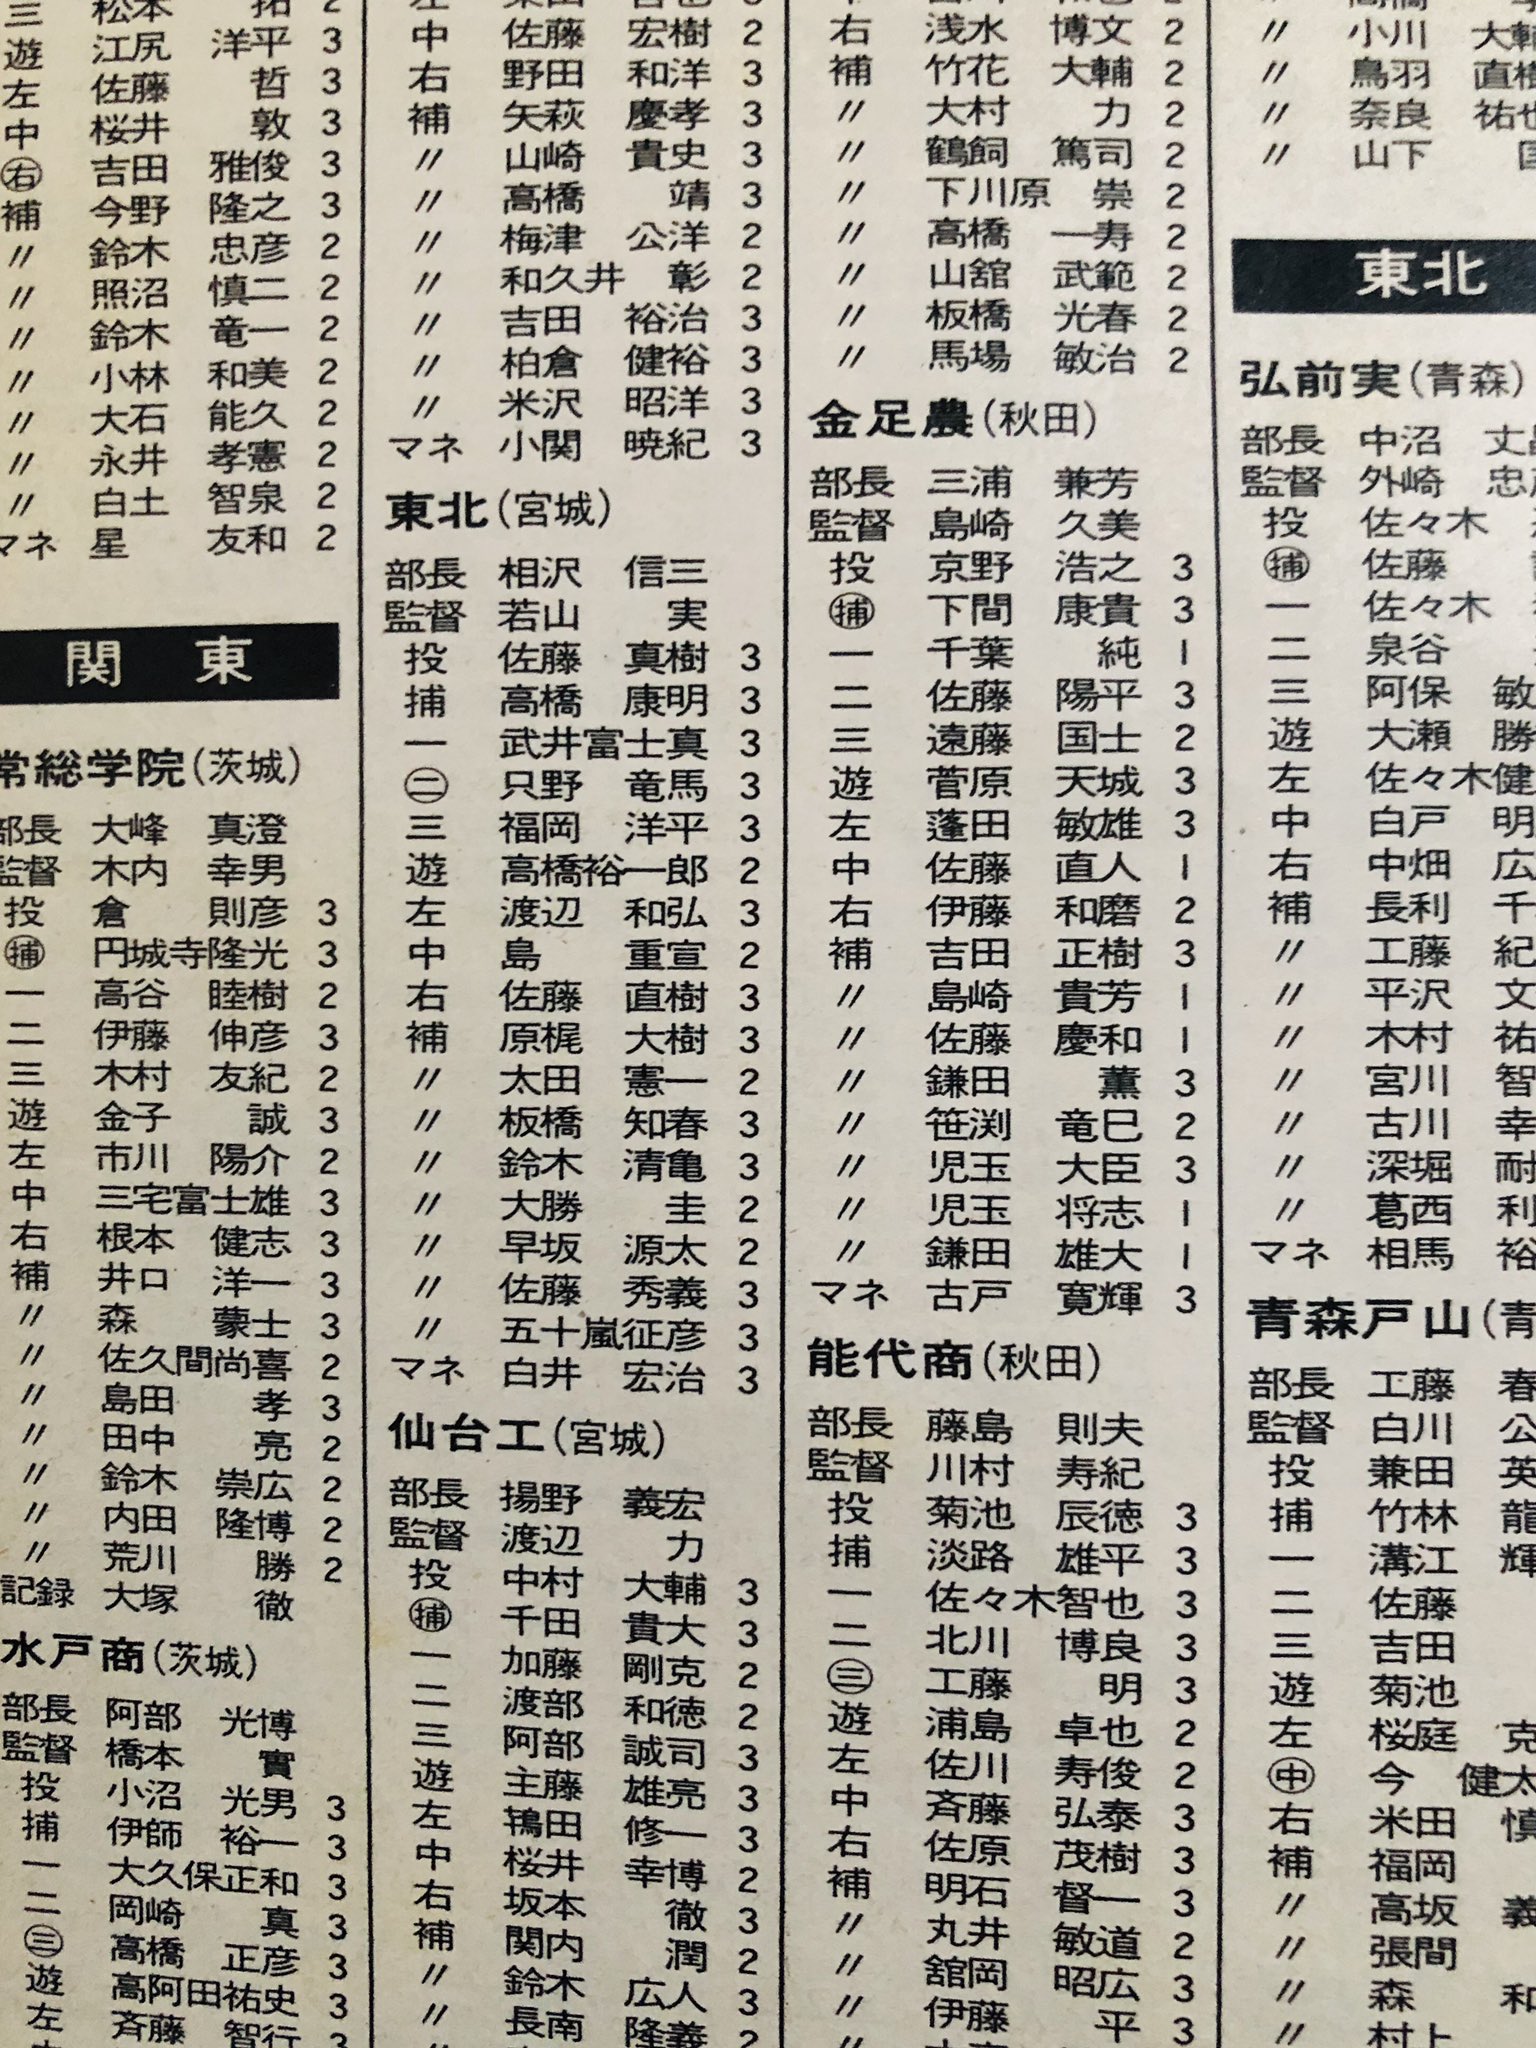 三 松本 拓 2
遊 江尻 洋平 3
左 佐藤 哲 3
中 桜井 敦 3
㊨ 吉田 雅俊 3
補 今野 隆之 3
〃 鈴木 忠彦 2
〃 照沼 慎二 2
〃 鈴木 竜一 2
〃 小林 和美 2
〃 大石 能久 2
〃 永井 孝憲 2
〃 白土 智泉 2
マネ 星 友和 2
関東
常総学院(茨城)
部長 大峰 真澄
監督 木内 幸男
投 倉 則彦 3
捕 円城寺隆光 3
一 高谷 睦樹 2
二 伊藤 伸彦 3
三 木村 友紀 2
遊 金子 誠 3
左 市川 陽介 2
中 三宅富士雄 3
右 根本 健志 3
補 井口 洋一 3
〃 森 蒙士 3
〃 佐久間尚喜 2
〃 島田 孝 3
〃 田中 亮 2
〃 鈴木 崇広 2
〃 内田 隆博 2
〃 荒川 勝 2
記録 大塚 徹
水戸商(茨城)
部長 阿部 光博
監督 橋本 實
投 小沼 光男 3
捕 伊師 裕一 3
一 大久保正和 3
二 岡崎 真 3
㊂ 高橋 正彦 3
遊 高阿田祐史 3
左 斉藤 智行 3
中 佐藤 宏樹 2
右 野田 和洋 3
補 矢萩 慶孝 3
〃 山崎 貴史 3
〃 高橋 靖 3
〃 梅津 公洋 2
〃 和久井 彰 2
〃 吉田 裕治 3
〃 柏倉 健裕 3
〃 米沢 昭洋 3
マネ 小関 暁紀 3
東北(宮城)
部長 相沢 信三
監督 若山 実
投 佐藤 真樹 3
捕 高橋 康明 3
一 武井富士真 3
㊁ 只野 竜馬 3
三 福岡 洋平 3
遊 高橋裕一郎 2
左 渡辺 和弘 3
中 島 重宣 2
右 佐藤 直樹 3
補 原梶 大樹 3
〃 太田 憲一 2
〃 板橋 知春 3
〃 鈴木 清亀 3
〃 大勝 圭 2
〃 早坂 源太 2
〃 佐藤 秀義 3
〃 五十嵐征彦 3
マネ 白井 宏治 3
仙台工(宮城)
部長 揚野 義宏
監督 渡辺 力
投 中村 大輔 3
捕 千田 貴大 3
一 加藤 剛克 2
二 渡部 和徳 2
三 阿部 誠司 3
遊 主藤 雄亮 3
左 鴇田 修一 3
中 桜井 幸博 2
右 坂本 徹 3
補 関内 潤 2
〃 鈴木 広人 3
〃 長南 隆義 2
右 浅水 博文 2
補 竹花 大輔 2
〃 大村 力 2
〃 鶴飼 篤司 2
〃 下川原 崇 2
〃 高橋 一寿 2
〃 山舘 武範 2
〃 板橋 光春 2
〃 馬場 敏治 2
金足農(秋田)
部長 三浦 兼芳
監督 島崎 久美
投 京野 浩之 3
捕 下間 康貴 3
一 千葉 純 1
二 佐藤 陽平 3
三 遠藤 国士 2
遊 菅原 天城 3
左 蓬田 敏雄 3
中 佐藤 直人 1
右 伊藤 和磨 2
補 吉田 正樹 3
〃 島崎 貴芳 1
〃 佐藤 慶和 1
〃 鎌田 薫 3
〃 笹渕 竜巳 2
〃 児玉 大臣 3
〃 児玉 将志 1
〃 鎌田 雄大 1
マネ 古戸 寛輝 3
能代商(秋田)
部長 藤島 則夫
監督 川村 寿紀
投 菊池 辰徳 3
捕 淡路 雄平 3
一 佐々木智也 3
二 北川 博良 3
㊂ 工藤 明 3
遊 浦島 卓也 2
左 佐川 寿俊 2
中 斉藤 弘泰 3
右 佐原 茂樹 3
補 明石 督一 3
〃 丸井 敏道 2
〃 舘岡 昭広 3
〃 伊藤 平 3
〃 小川 大輔
〃 鳥羽 直樹
〃 奈良 祐也
〃 山下
東北
弘前実(青森)
部長 中沼 丈
監督 外崎 忠
投 佐々木
捕 佐藤
一 佐々木
二 泉谷
三 阿保 敏
遊 大瀬 勝
左 佐々木健
中 白戸 明
右 中畑 広
補 長利 千
〃 工藤 紀
〃 平沢 文
〃 木村 祐
〃 宮川 智
〃 古川 幸
〃 深堀 耐
〃 葛西 利
マネ 相馬 裕
青森戸山(青
部長 工藤 春
監督 白川 公
投 兼田 英
捕 竹林 龍
一 溝江 輝
二 佐藤
三 吉田
遊 菊池
左 桜庭 克
㊥ 今 健太
右 米田 慎
補 福岡
〃 高坂 義
〃 張間
〃 森 和
〃 村上